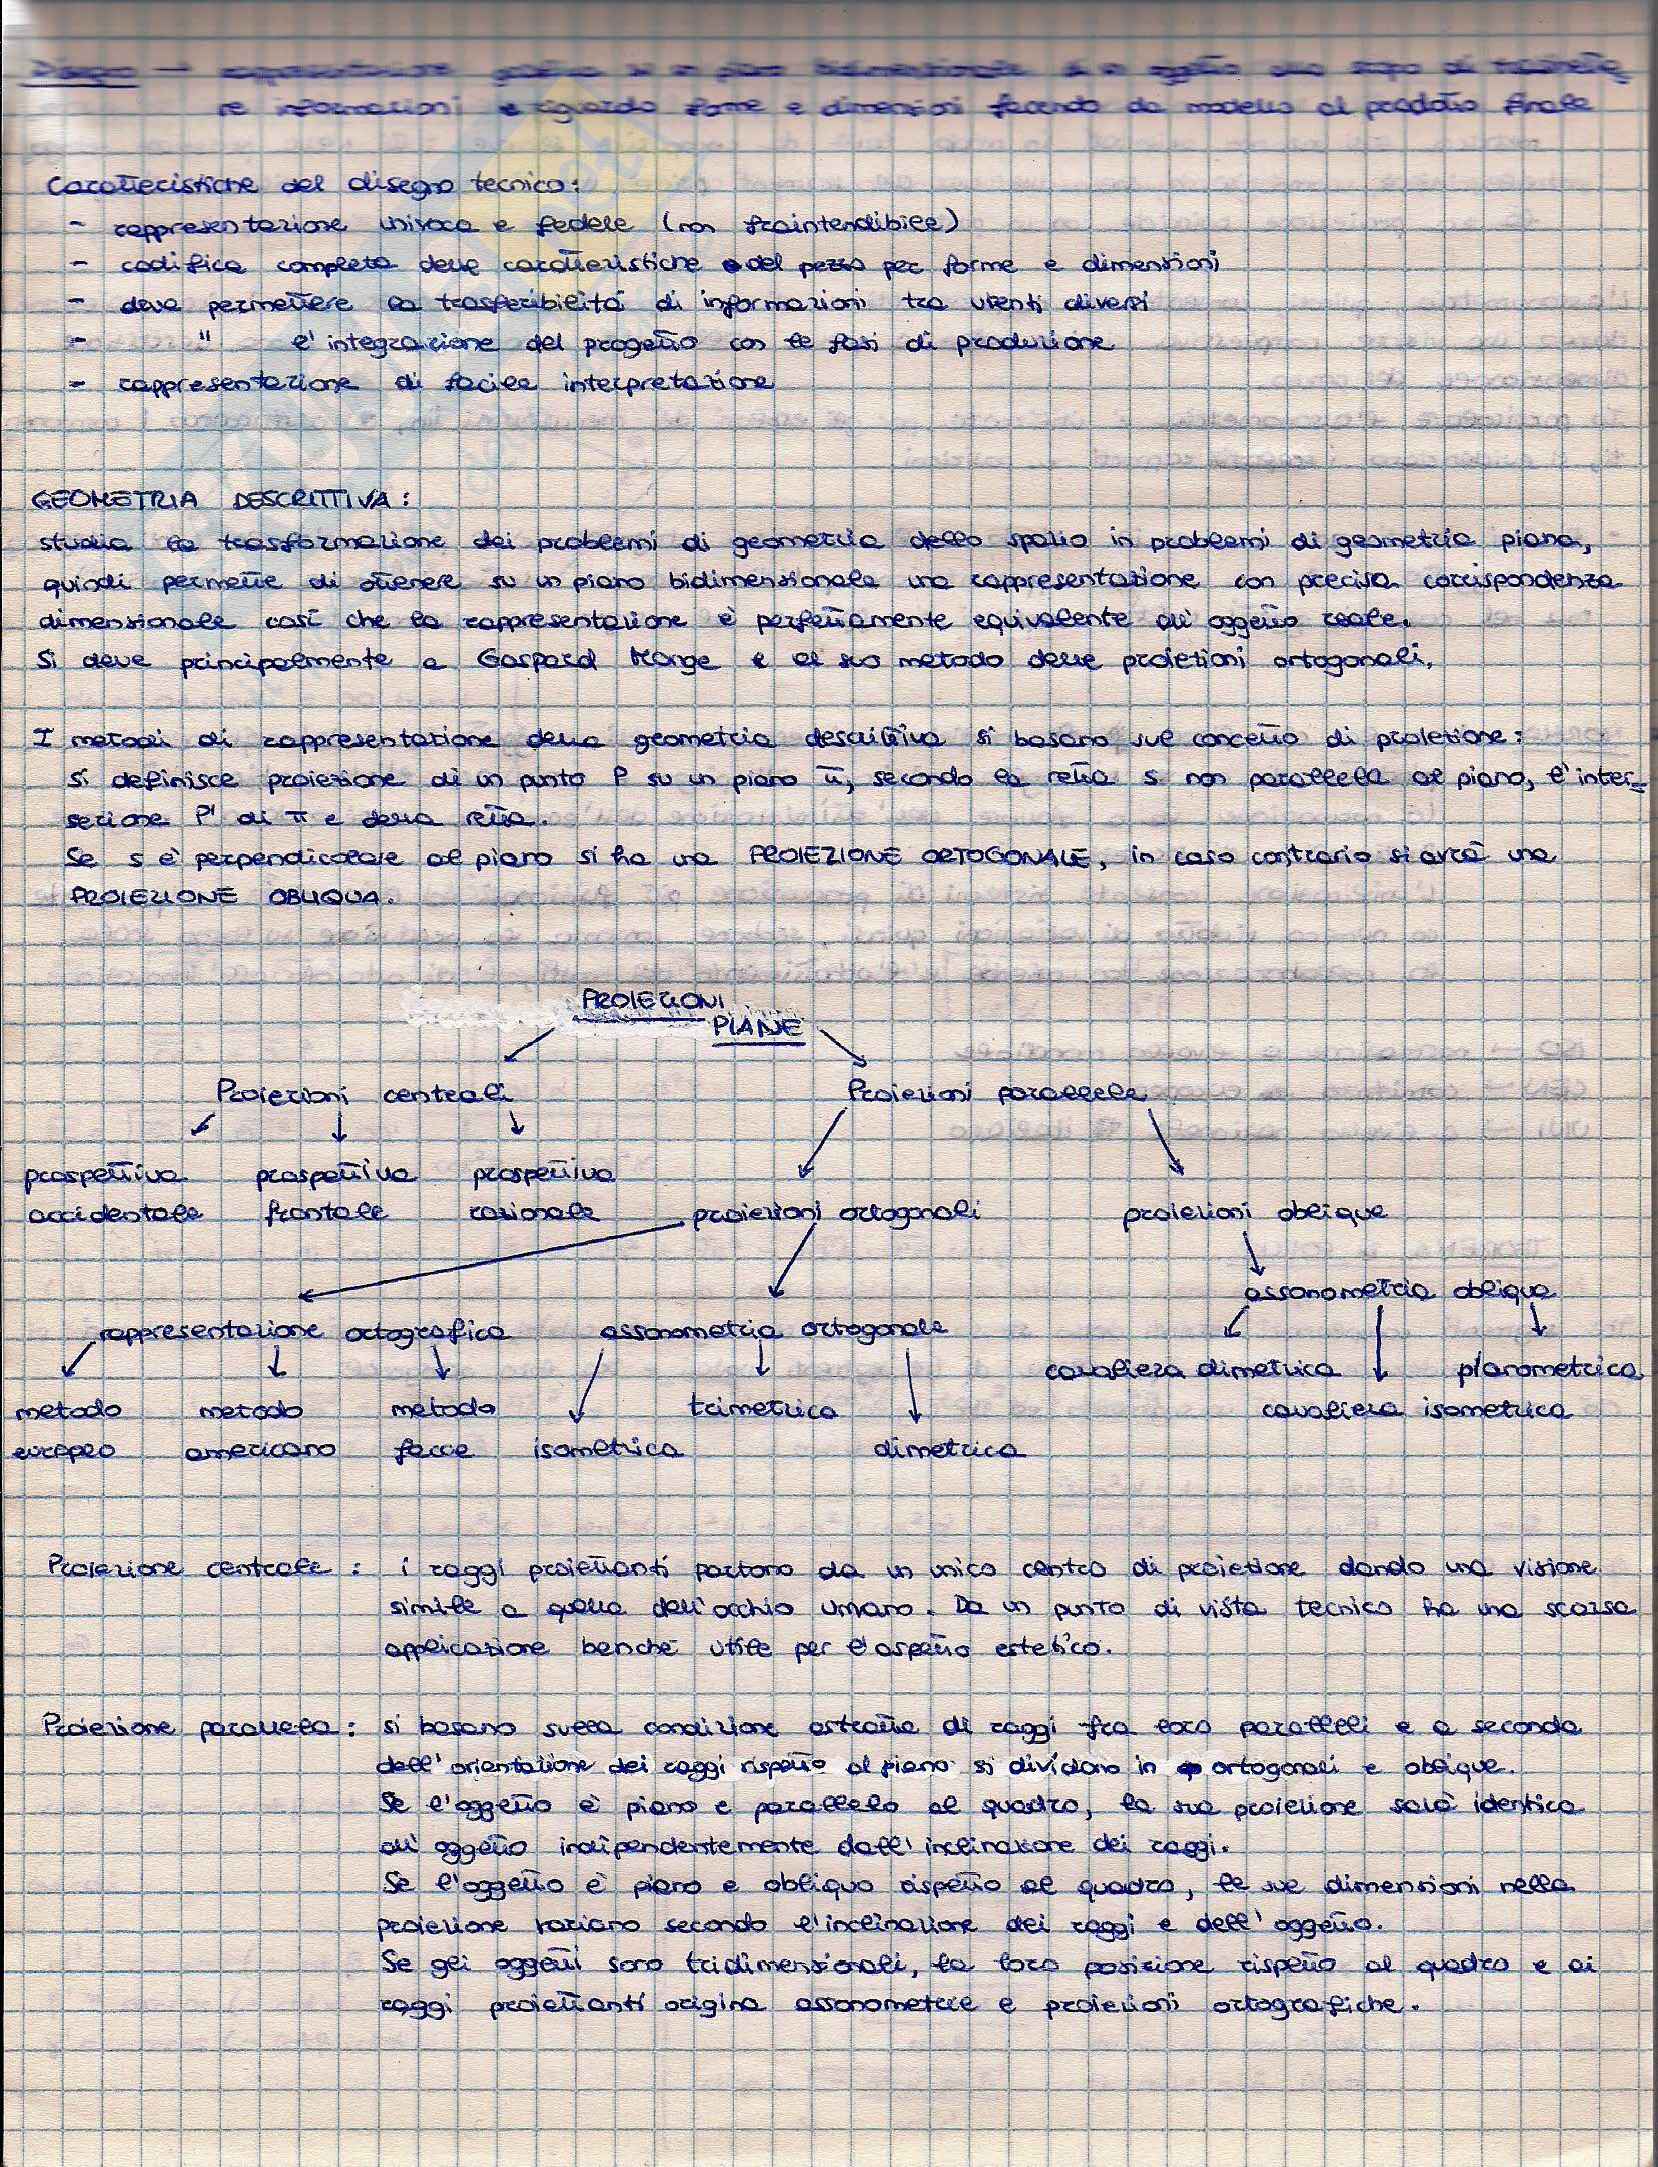 Disegno → rappresentazione grafica su un piano bidimensionale di un oggetto allo scopo di trasmette
re informazioni e riguardo forme e dimensioni facendo da modello al prodotto finale
Caratteristiche del disegno tecnico:
- rappresentazione univoca e fedele (non fraintendibile)
- codifica completa delle caratteristiche del pezzo per forme e dimensioni
- deve permettere la trasferibilità di informazioni tra utenti diversi
- " l'integrazione del progetto con le fasi di produzione
- rappresentazione di facile interpretazione
GEOMETRIA DESCRITTIVA:
studia la trasformazione dei problemi di geometria dello spazio in problemi di geometria piana,
quindi permette di ottenere su un piano bidimensionale una rappresentazione con precisa corrispondenza
dimensionale così che la rappresentazione è perfettamente equivalente all'oggetto reale.
Si deve principalmente a Gaspard Monge e al suo metodo delle proiezioni ortogonali.
I metodi di rappresentazione della geometria descrittiva si basano sul concetto di proiezione:
si definisce proiezione di un punto P su un piano π, secondo la retta s non parallela al piano, l'inter-
sezione P' di π e della retta.
Se s è perpendicolare al piano si ha una PROIEZIONE ORTOGONALE, in caso contrario si avrà una
PROIEZIONE OBLIQUA.
PROIEZIONI
PIANE
Proiezioni centrali Proiezioni parallele
prospettiva prospettiva prospettiva
accidentale frontale razionale proiezioni ortogonali proiezioni oblique
assonometria obliqua
rappresentazione ortografica assonometria ortogonale
cavaliera dimetrica planometrica
metodo metodo metodo trimetrica cavaliera isometrica
europeo americano frecce isometrica dimetrica
Proiezione centrale: i raggi proiettanti partono da un unico centro di proiezione dando una visione
simile a quella dell'occhio umano. Da un punto di vista tecnico ha una scarsa
applicazione benché utile per l'aspetto estetico.
Proiezione parallela: si basano sulla condizione astratta di raggi fra loro paralleli e a seconda
dell'orientazione dei raggi rispetto al piano si dividono in ortogonali e oblique.
Se l'oggetto è piano e parallelo al quadro, la sua proiezione sarà identica
all'oggetto indipendentemente dall'inclinazione dei raggi.
Se l'oggetto è piano e obliquo rispetto al quadro, le sue dimensioni nella
proiezione variano secondo l'inclinazione dei raggi e dell'oggetto.
Se gli oggetti sono tridimensionali, la loro posizione rispetto al quadro e ai
raggi proiettanti origina assonometrie e proiezioni ortografiche.